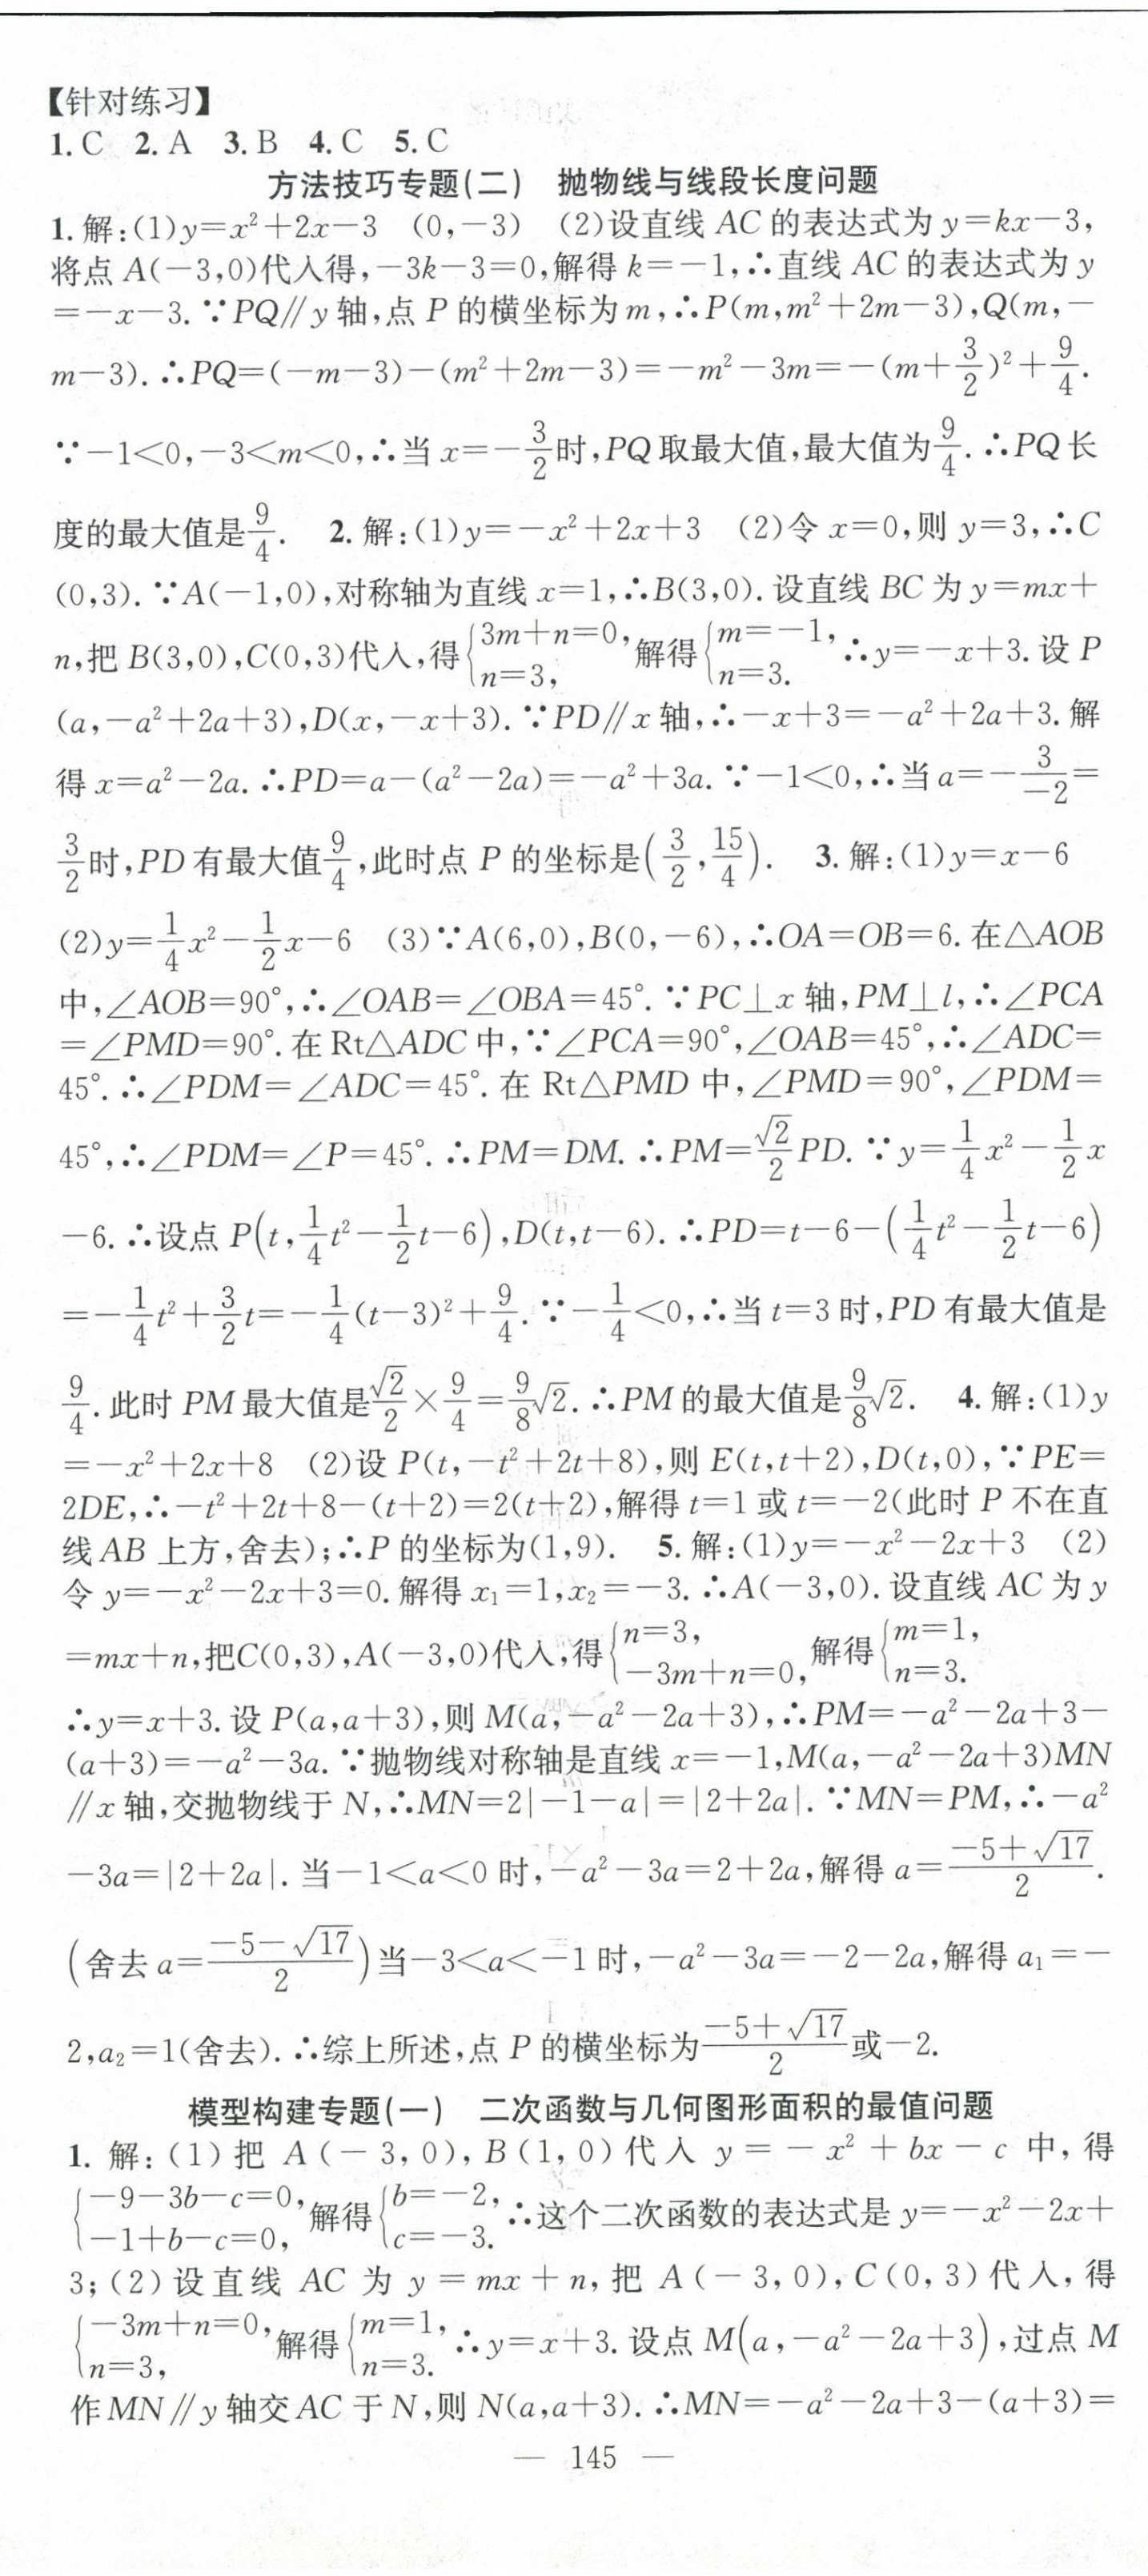 【针对练习】
1. C 2. A 3. B 4. C 5. C
方法技巧专题(二) 抛物线与线段长度问题
1. 解:(1)y=x²+2x−3 (0,−3) (2)设直线 AC 的表达式为 y=kx−3,
将点 A(−3,0)代入得,−3k−3=0,解得 k=−1,∴直线 AC 的表达式为 y
=−x−3. ∵PQ∥y 轴,点 P 的横坐标为 m,∴P(m,m²+2m−3),Q(m,−
m−3). ∴PQ=(−m−3)−(m²+2m−3)=−m²−3m=−(m+3/2)²+9/4.
∵−1<0,−3<m<0,∴当 x=−3/2时,PQ 取最大值,最大值为9/4. ∴PQ 长
度的最大值是9/4. 2. 解:(1)y=−x²+2x+3 (2)令 x=0,则 y=3,∴C
(0,3). ∵A(−1,0),对称轴为直线 x=1,∴B(3,0). 设直线 BC 为 y=mx+
n,把 B(3,0),C(0,3)代入,得{3m+n=0, n=3, 解得{m=−1, n=3. ∴y=−x+3. 设 P
(a,−a²+2a+3),D(x,−x+3). ∵PD∥x 轴,∴−x+3=−a²+2a+3. 解
得 x=a²−2a. ∴PD=a−(a²−2a)=−a²+3a. ∵−1<0,∴当 a=−3/−2=
3/2时,PD 有最大值9/4,此时点 P 的坐标是(3/2,15/4). 3. 解:(1)y=x−6
(2)y=1/4x²−1/2x−6 (3)∵A(6,0),B(0,−6),∴OA=OB=6. 在△AOB
中,∠AOB=90°,∴∠OAB=∠OBA=45°. ∵PC⊥x 轴,PM⊥l,∴∠PCA
=∠PMD=90°. 在 Rt△ADC 中,∵∠PCA=90°,∠OAB=45°,∴∠ADC=
45°. ∴∠PDM=∠ADC=45°. 在 Rt△PMD 中,∠PMD=90°,∠PDM=
45°,∴∠PDM=∠P=45°. ∴PM=DM. ∴PM=√2/2PD. ∵y=1/4x²−1/2x
−6. ∴设点 P(t,1/4t²−1/2t−6),D(t,t−6). ∴PD=t−6−(1/4t²−1/2t−6)
=−1/4t²+3/2t=−1/4(t−3)²+9/4. ∵−1/4<0,∴当 t=3 时,PD 有最大值是
9/4. 此时 PM 最大值是√2/2×9/4=9/8√2. ∴PM 的最大值是9/8√2. 4. 解:(1)y
=−x²+2x+8 (2)设 P(t,−t²+2t+8),则 E(t,t+2),D(t,0),∵PE=
2DE,∴−t²+2t+8−(t+2)=2(t+2),解得 t=1 或 t=−2(此时 P 不在直
线 AB 上方,舍去);∴P 的坐标为(1,9). 5. 解:(1)y=−x²−2x+3 (2)
令 y=−x²−2x+3=0. 解得 x₁=1,x₂=−3. ∴A(−3,0). 设直线 AC 为 y
=mx+n,把C(0,3),A(−3,0)代入,得{n=3, −3m+n=0, 解得{m=1, n=3.
∴y=x+3. 设 P(a,a+3),则 M(a,−a²−2a+3),∴PM=−a²−2a+3−
(a+3)=−a²−3a. ∵抛物线对称轴是直线 x=−1,M(a,−a²−2a+3)MN
∥x 轴,交抛物线于 N,∴MN=2|−1−a|=|2+2a|. ∵MN=PM,∴−a²
−3a=|2+2a|. 当−1<a<0 时,−a²−3a=2+2a,解得 a=(−5+√17)/2.
(舍去 a=(−5−√17)/2)当−3<a<−1 时,−a²−3a=−2−2a,解得 a₁=−
2,a₂=1(舍去). ∴综上所述,点 P 的横坐标为(−5+√17)/2或−2.
模型构建专题(一) 二次函数与几何图形面积的最值问题
1. 解:(1)把 A(−3,0),B(1,0)代入 y=−x²+bx−c 中,得
{−9−3b−c=0, −1+b−c=0, 解得{b=−2, c=−3. ∴这个二次函数的表达式是 y=−x²−2x+
3;(2)设直线 AC 为 y=mx+n,把 A(−3,0),C(0,3)代入,得
{−3m+n=0, n=3, 解得{m=1, n=3. ∴y=x+3. 设点 M(a,−a²−2a+3),过点 M
作 MN∥y 轴交 AC 于 N,则 N(a,a+3). ∴MN=−a²−2a+3−(a+3)=
— 145 —